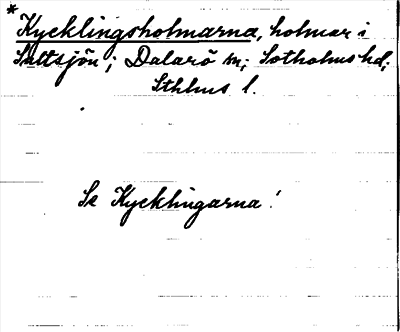 * Kycklingsholmarna, holmar i
Saltsjön; Dalarö sn; Sotholms hd;
Sthlms l.
Se Kycklingarna!